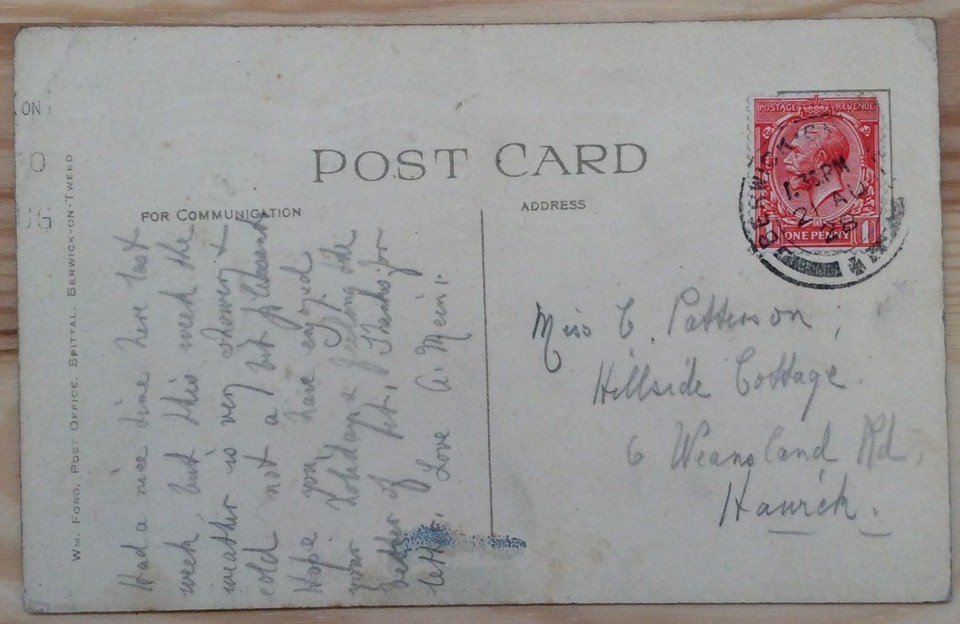 POST CARD
FOR COMMUNICATION
ADDRESS
WM. FORD, POST OFFICE, SPITTAL, BERWICK-ON-TWEED
ON
0
UG
POSTAGE REVENUE
ONE PENNY 1
BERWICK
1.35PM
21 AU
28
Had a nice time here last
week but this week the
weather is very showery &
cold not a bit pleasant
Hope you have enjoyed
your holiday & feeling the
better of it. Thanks for
letter. Love A. Mein.
Miss C. Patterson,
Hillside Cottage
6 Weensland Rd,
Hawick.